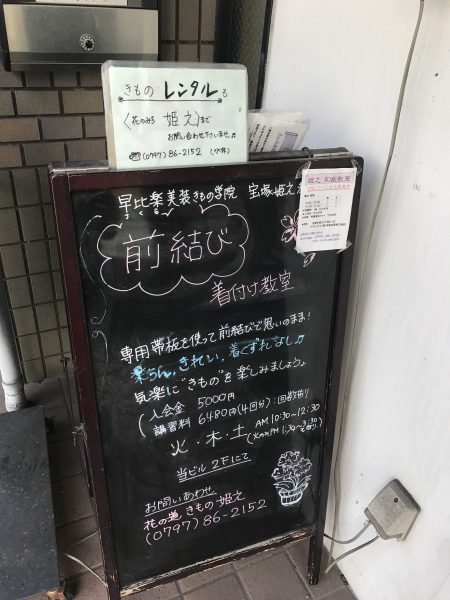 きもの レンタル も
〈花のみち 姫之〉まで
お問い合わせ下さいませ♪
☎(0797)86-2152
早比楽美装きもの学院 宝塚姫之
前結び
着付け教室
専用帯板を使って前結びで思いのまま!
楽らん、きれい、着くずれなし♪
気楽に"きもの"を楽しみましょう♪
入会金 5000円
講習料 6480円(4回分):回数券有り
火・木・土 AM 10:30~12:30
(火のみPM 1:30~3:30も有り)
当ビル 2Fにて
お問いあわせ
花の道 きもの 姫之
(0797)86-2152
姫之 和紙教室